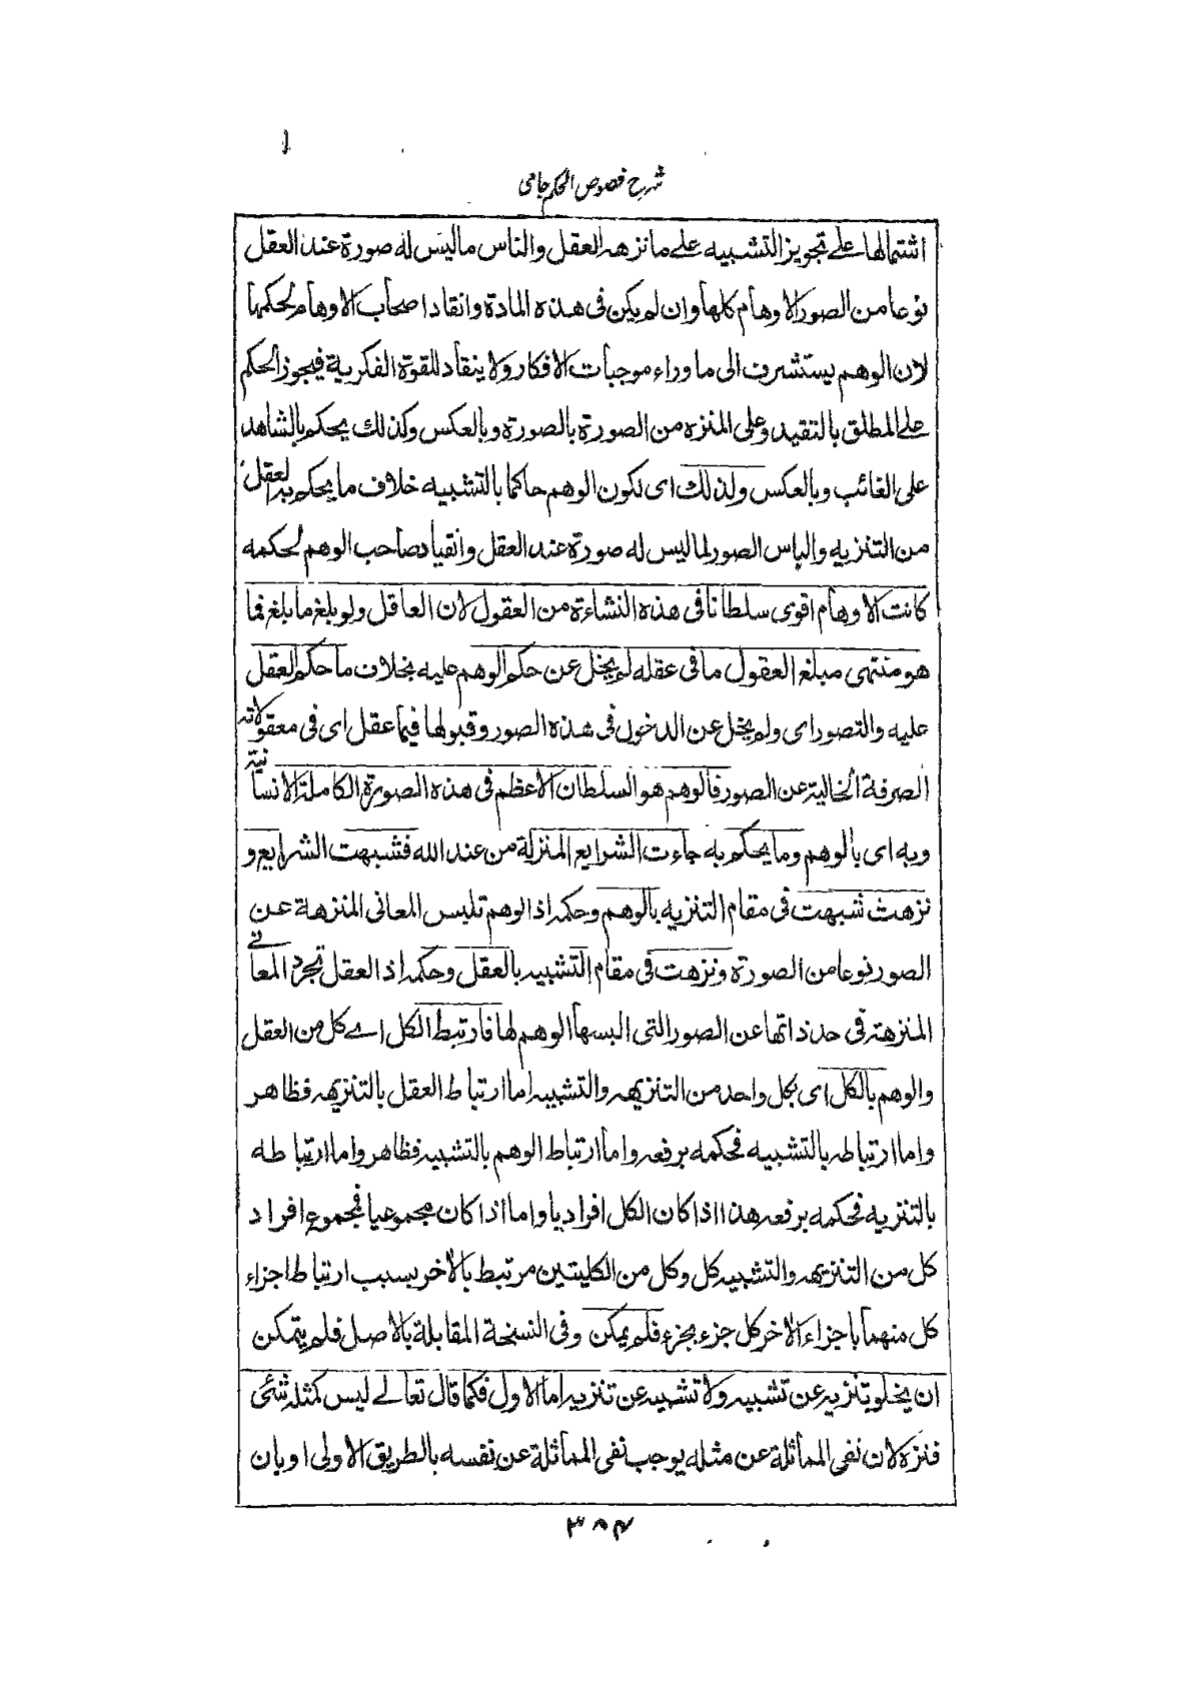 شرح فصوص الحكم جامی
اشتمالها علے تجويز التشبيه علے ما نزهه العقل والناس ماليس له صورة عند العقل
نوعا من الصور الاوهام كلها وان لم يكن فى هذه المادة وانقاد اصحاب الاوهام لحكمها
لان الوهم يستشرف الى ما وراء موجبات الافكار ولا ينقاد للقوة الفكرية فيجوز الحكم
علے المطلق بالتقيد وعلى المنزه من الصورة بالصورة وبالعكس وكذلك يحكم بالشاهد
على الغائب وبالعكس ولذلك اى لكون الوهم حاكما بالتشبيه خلاف ما يحكم به العقل
من التنزيه والباس الصور لما ليس له صورة عند العقل وانقياد صاحب الوهم لحكمه
كانت الاوهام اقوى سلطانا فى هذه النشاءة من العقول لان العاقل ولو بلغ ما بلغ فيما
هو منتهى مبلغ العقول ما فى عقله لم يخل عن حكم الوهم عليه بخلاف ما حكم العقل
عليه والتصور اى ولم يخل عن الدخول فى هذه الصور وقبولها فيما عقل اى فى معقولاته
الصرفة الخالية عن الصور فالوهم هو السلطان الاعظم فى هذه الصورة الكاملة الانسانية
وبه اى بالوهم وما يحكم به جاءت الشرايع المنزلة من عند الله فشبهت الشرايع و
نزهت شبهت فى مقام التنزيه بالوهم وحكمه اذ الوهم تلبس المعانى المنزهة عن
الصور نوعا من الصورة ونزهت فى مقام التشبيه بالعقل وحكمه اذ العقل تجرد المعانے
المنزهة فى حد ذاتها عن الصور التى البسها الوهم لها فارتبط الكل اے كل من العقل
والوهم بالكل اى بكل واحد من التنزيهه والتشبيه اما ارتباط العقل بالتنزيهه فظاهر
واما ارتباطه بالتشبيه فحكمه برفعه واما ارتباط الوهم بالتشبيه فظاهر واما ارتباطه
بالتنزيه فحكمه برفعه هذا اذا كان الكل افراديا واما اذا كان مجموعيا فمجموع افراد
كل من التنزيهه والتشبيه كل وكل من الكليتين مرتبط بالآخر بسبب ارتباط اجزاء
كل منهما باجزاء الآخر كل جزء بجزء فلم يمكن وفى النسخة المقابلة بالاصل فلم يتمكن
ان يخلو تنزيه عن تشبيه ولا تشبيه عن تنزيه اما الاول فكما قال تعالے ليس كمثله شئى
فنزه لان نفى المماثلة عن مثله يوجب نفى المماثلة عن نفسه بالطريق الاولى او بان